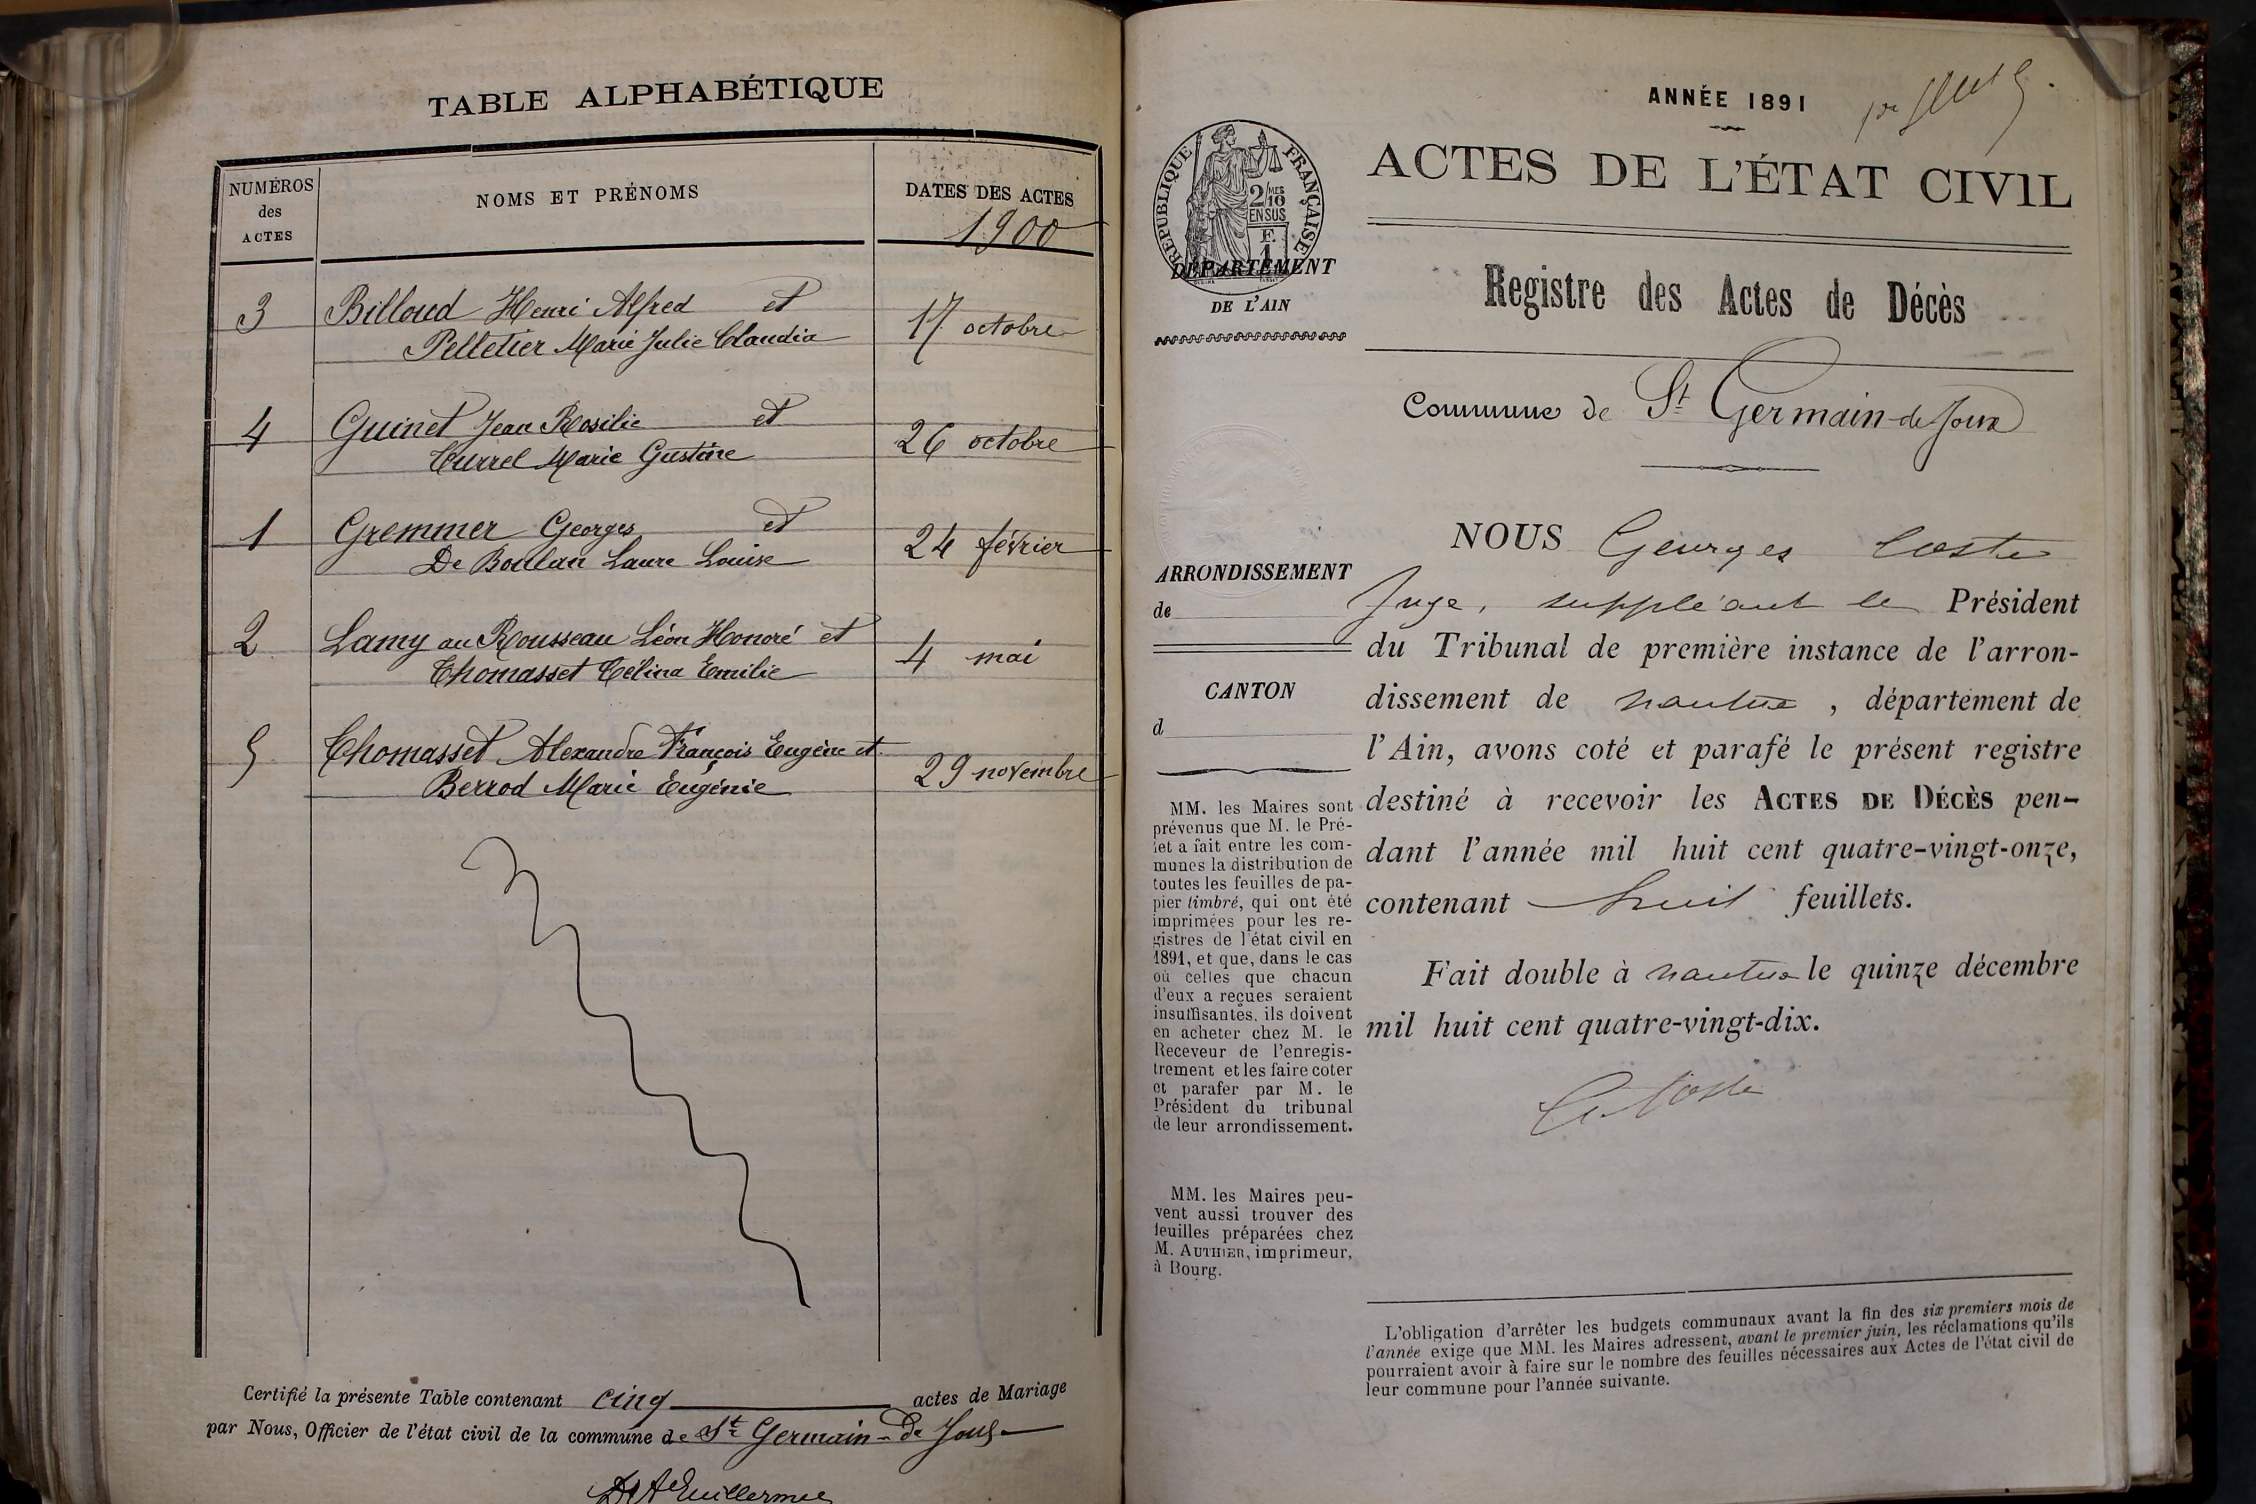 TABLE ALPHABÉTIQUE
NUMÉROS
des
ACTES
NOMS ET PRÉNOMS
DATES DES ACTES
1900
3 Billoud Henri Alfred et
Pelletier Marie Julie Claudia 17 octobre
4 Guinet Jean Rosilie et
Currel Marie Gustine 26 octobre
1 Gremmer Georges et
De Boulan Laure Louise 24 février
2 Lamy au Rousseau Léon Honoré et
Thomasset Célina Emilie 4 mai
5 Thomasset Alexandre François Eugène et
Berrod Marie Eugénie 29 novembre
Certifié la présente Table contenant cinq actes de Mariage
par Nous, Officier de l'état civil de la commune de St Germain-de Joux
ANNÉE 1891
ACTES DE L'ÉTAT CIVIL
RÉPUBLIQUE FRANÇAISE
2/10MES
EN SUS
DÉPARTEMENT
DE L'AIN
Registre des Actes de Décès
Commune de St Germain-de Joux
ARRONDISSEMENT
de
CANTON
d
MM. les Maires sont
prévenus que M. le Pré-
fet a fait entre les com-
munes la distribution de
toutes les feuilles de pa-
pier timbré, qui ont été
imprimées pour les re-
gistres de l'état civil en
1891, et que, dans le cas
où celles que chacun
d'eux a reçues seraient
insuffisantes, ils doivent
en acheter chez M. le
Receveur de l'enregis-
trement et les faire coter
et parafer par M. le
Président du tribunal
de leur arrondissement.
MM. les Maires peu-
vent aussi trouver des
feuilles préparées chez
M. AUTHIER, imprimeur,
à Bourg.
NOUS Georges Coste
Juge, suppléant le Président
du Tribunal de première instance de l'arron-
dissement de nantua, département de
l'Ain, avons coté et parafé le présent registre
destiné à recevoir les ACTES DE DÉCÈS pen-
dant l'année mil huit cent quatre-vingt-onze,
contenant huit feuillets.
Fait double à nantua le quinze décembre
mil huit cent quatre-vingt-dix.
L'obligation d'arrêter les budgets communaux avant la fin des six premiers mois de
l'année exige que MM. les Maires adressent, avant le premier juin, les réclamations qu'ils
pourraient avoir à faire sur le nombre des feuilles nécessaires aux Actes de l'état civil de
leur commune pour l'année suivante.